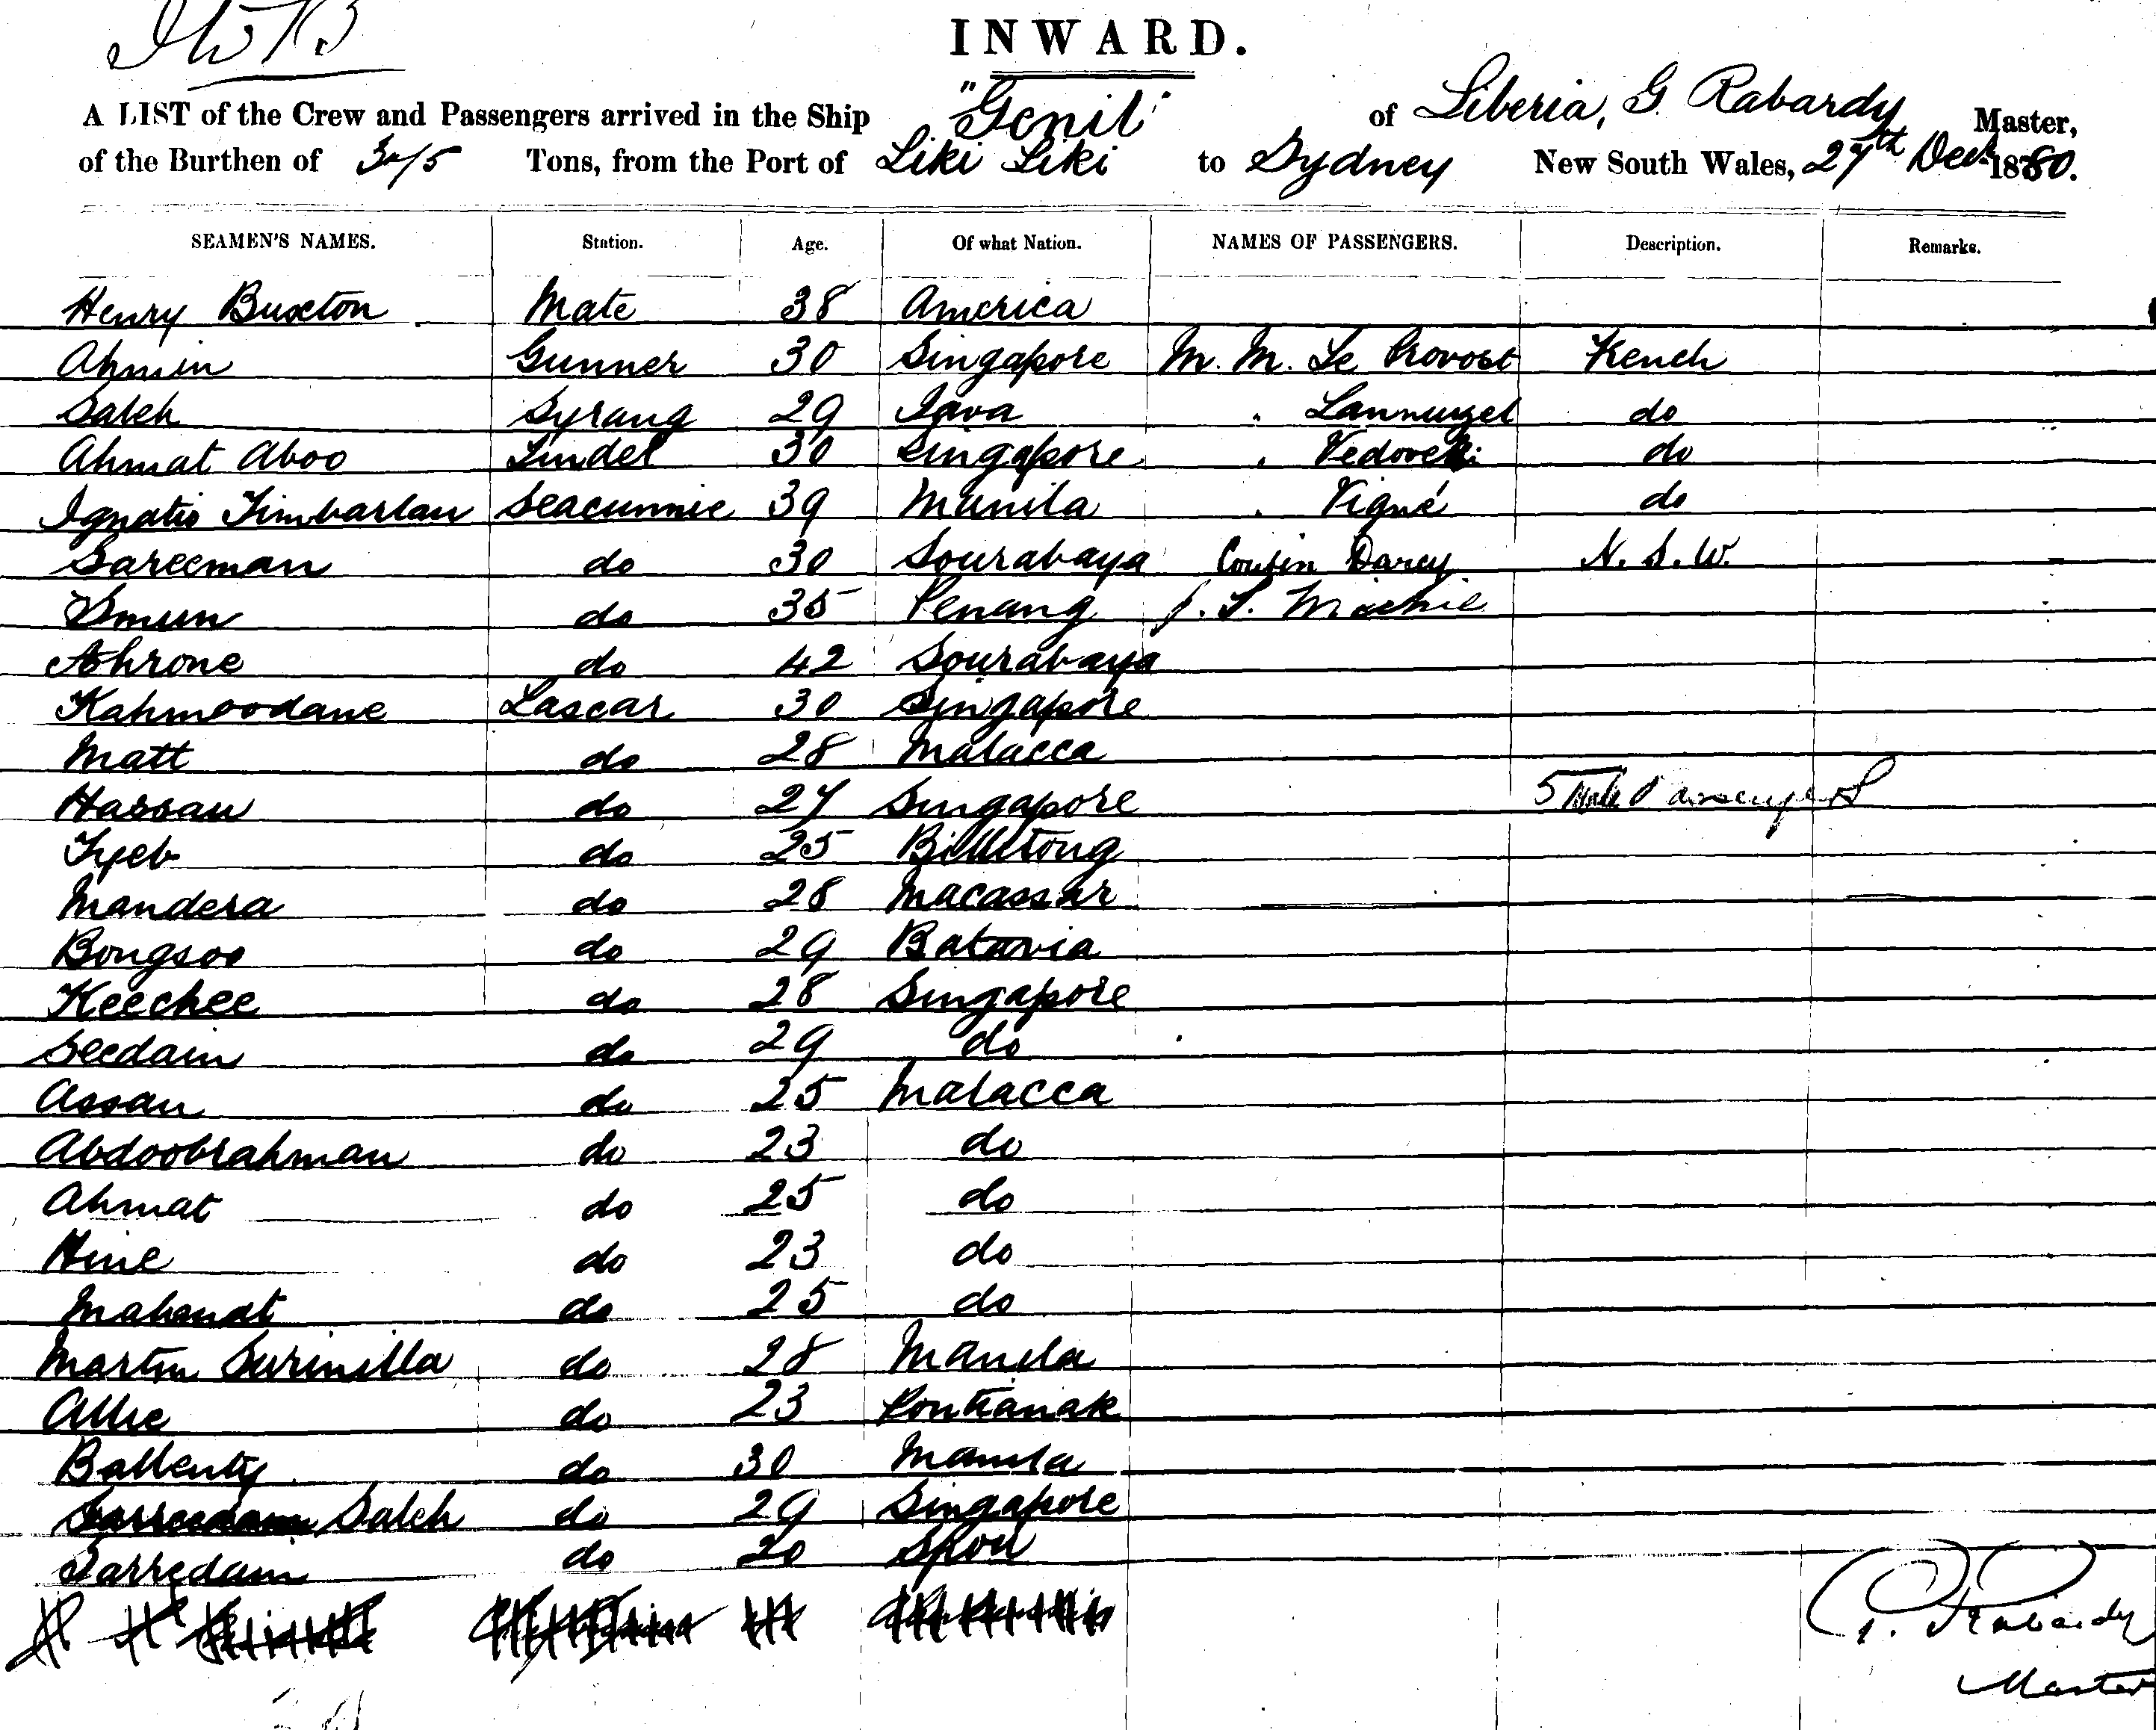 INWARD.
A LIST of the Crew and Passengers arrived in the Ship "Genil" of Liberia, G. Rabardy Master,
of the Burthen of Tons, from the Port of Liki Liki to Sydney New South Wales, 27th Decr 1880.
SEAMEN'S NAMES. Station. Age. Of what Nation. NAMES OF PASSENGERS. Description. Remarks.
Henry Buxton Mate 38 America
Ahmin Gunner 30 Singapore M. M. Le Provost French
Saleh Syrang 29 Java " do
Ahmat Aboo Tindel 30 Singapore " do
Ignatio Timbarlan Seacunnie 39 Manila " Vigné do
Sareeman do 30 Sourabaya Cousin Darcy N. S. W.
do 35 Penang
Ahrone do 42 Sourabaya
Kahmoodane Lascar 30 Singapore
Matt do 28 Malacca
Hassan do 27 Singapore 5 Male Passengers
Tyeb do 25 Billitong
Mandera do 28 Macassar
Bongsoo do 29 Batavia
Keechee do 28 Singapore
Seedain do 29 do
Assan do 25 Malacca
Abdoobrahman do 23 do
Ahmat do 25 do
Hine do 23 do
Mahomat do 25 do
Martin Surinilla do 28 Manila
Allie do 23 Pontianak
Ballenty do 30 Manila
Saleh do 29 Singapore
Sarredam do 20
G. Rabardy
Master